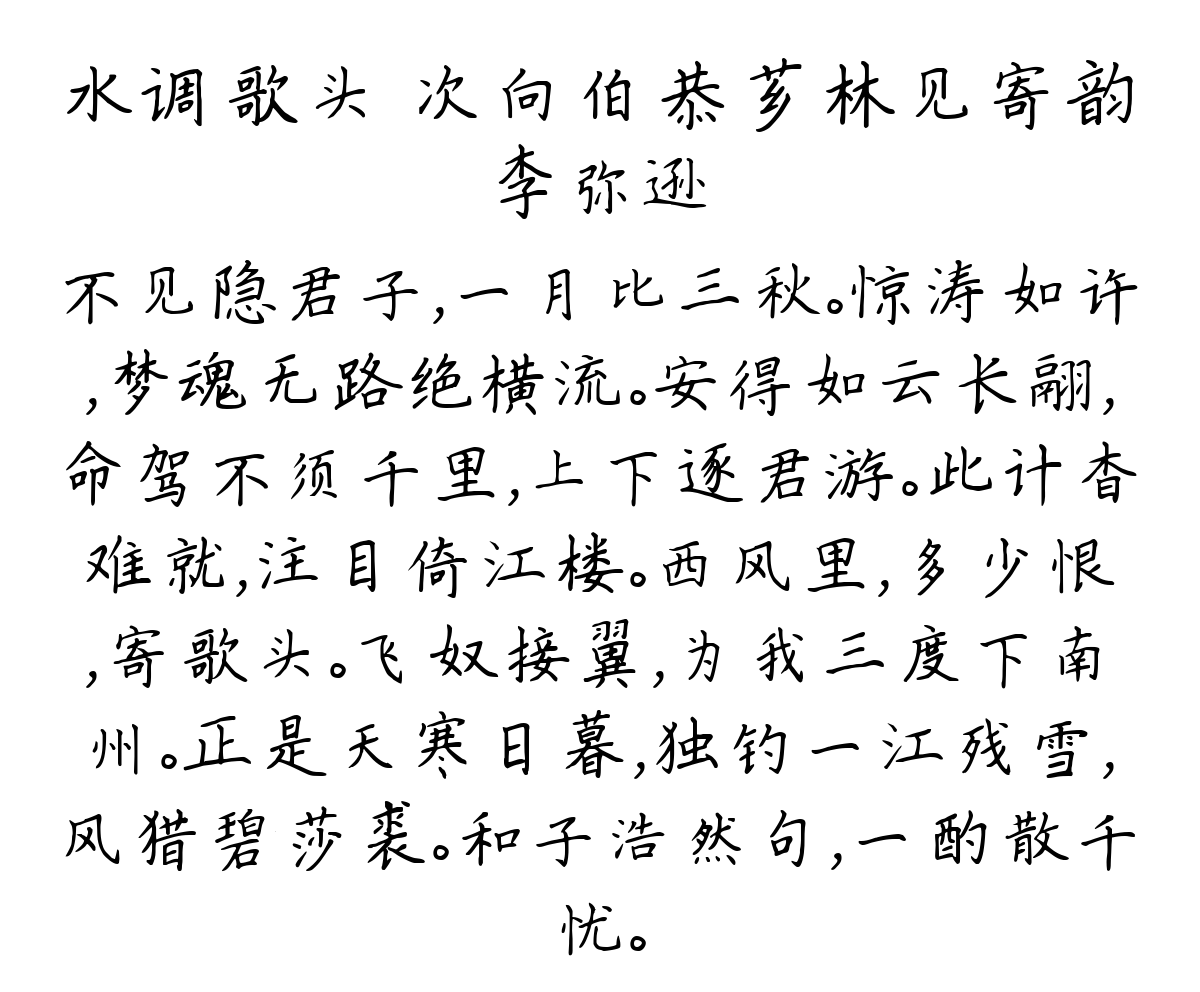 水调歌头 次向伯恭芗林见寄韵
李弥逊
不见隐君子,一月比三秋。惊涛如许
,梦魂无路绝横流。安得如云长翮,
命驾不须千里,上下逐君游。此计杳
难就,注目倚江楼。西风里,多少恨
,寄歌头。飞奴接翼,为我三度下南
州。正是天寒日暮,独钓一江残雪,
风猎碧莎裘。和子浩然句,一酌散千
忧。